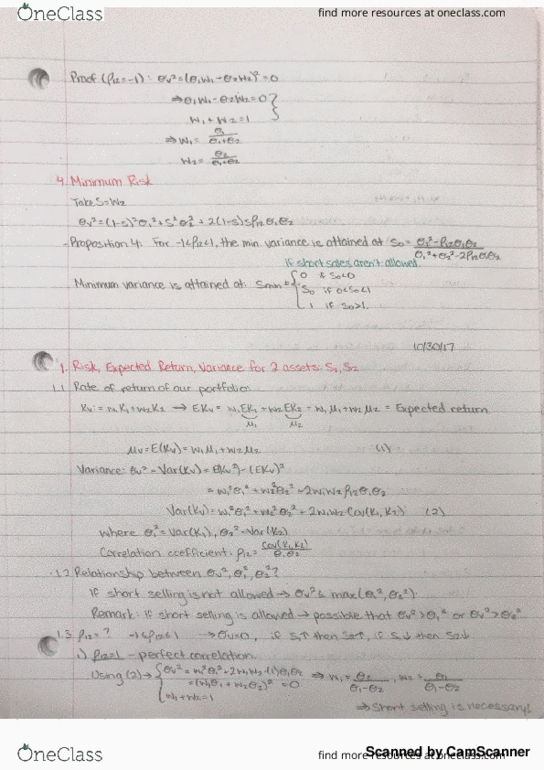 OneClass
find more resources at oneclass.com
Proof (ρ₁₂=-1): σᵥ²=(σ₁w₁-σ₂w₂)²=0
⇒σ₁w₁-σ₂w₂=0
w₁+w₂=1
⇒w₁=
w₂=
4. Minimum Risk
Take S=w₂
σᵥ²=(1-s)²σ₁²+s²σ₂²+2(1-s)sρ₁₂σ₁σ₂
-Proposition 4: For -1<ρ₁₂<1, the min. variance is attained at S₀= σ₁²-ρ₁₂σ₁σ₂ / σ₁²+σ₂²-2ρ₁₂σ₁σ₂
If short sales aren't allowed
Minimum variance is attained at: Smin= { 0 if S₀<0
S₀ if 0<S₀<1
1 if S₀>1.
10/30/17
1. Risk, Expected Return, Variance for 2 assets: S₁, S₂
1.1 Rate of return of our portfolio
Kᵥ = w₁K₁+w₂K₂ → EKᵥ = w₁EK₁+w₂EK₂ = w₁μ₁+w₂μ₂ = Expected return
μ₁ μ₂
μᵥ=E(Kᵥ)=w₁μ₁+w₂μ₂ (1)
Variance: σᵥ²=Var(Kᵥ)=E(Kᵥ²)-(EKᵥ)²
=w₁²σ₁²+w₂²σ₂²+2w₁w₂ρ₁₂σ₁σ₂
Var(Kᵥ)=w₁²σ₁²+w₂²σ₂²+2w₁w₂Cov(K₁,K₂) (2)
where σ₁²=Var(K₁), σ₂²=Var(K₂)
Correlation coefficient: ρ₁₂= Cov(K₁,K₂) / σ₁σ₂
1.2 Relationship between σᵥ², σ₁², σ₂²?
If short selling is not allowed → σᵥ²≤ max(σ₁², σ₂²)
Remark: If short selling is allowed → possible that σᵥ²>σ₁² or σᵥ²>σ₂²
1.3 ρ₁₂=? -1≤ρ₁₂≤1 → σᵥ=0, if S₁↑ then S₂↑, if S₁↓ then S₂↓
i) ρ₁₂=1 - perfect correlation
Using (2)→ { σᵥ²=w₁²σ₁²+2w₁w₂(1)σ₁σ₂
=(w₁σ₁+w₂σ₂)²=0 ⇒ w₁= σ₂ / σ₁-σ₂, w₂= σ₁ / σ₁-σ₂
w₁+w₂=1
⇒ Short selling is necessary!
OneClass
find more resources at oneclass.com
Scanned by CamScanner